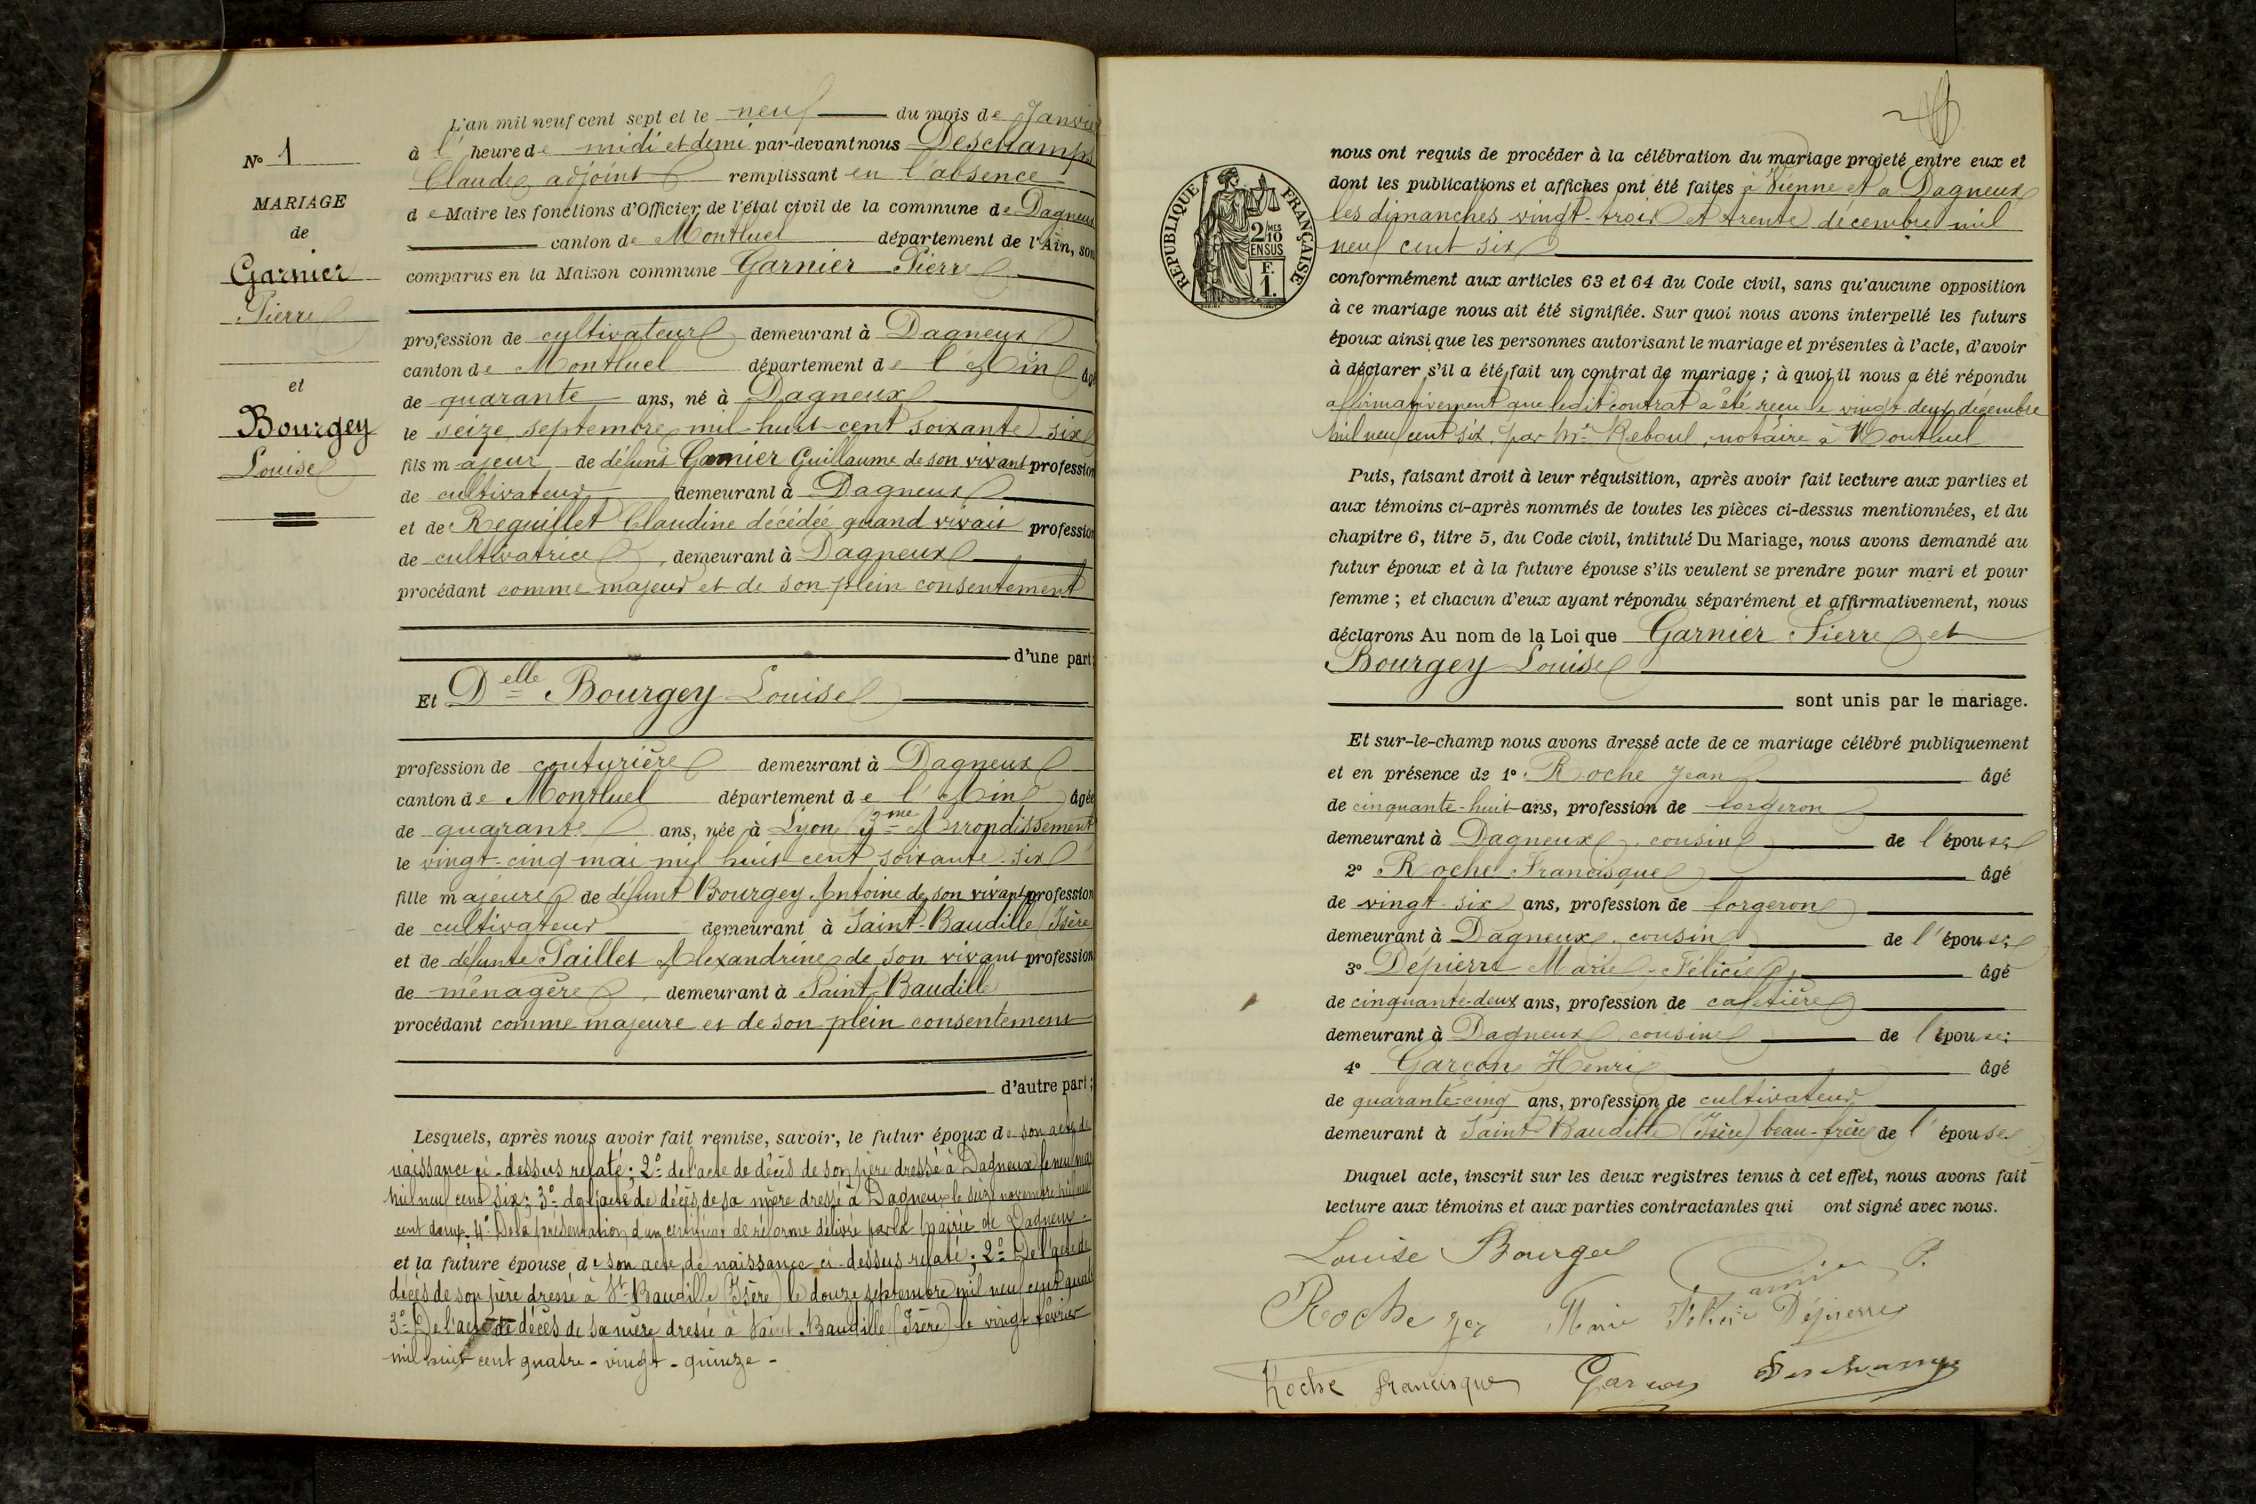 N° 1
MARIAGE
de
Garnier
Pierre
et
Bourgey
Louise
L'an mil neuf cent sept et le neuf du mois de Janvier
à l'heure de midi et demi par-devant nous Deschamps
Claude, adjoint remplissant en l'absence
de Maire les fonctions d'Officier de l'état civil de la commune de Dagneux
canton de Montluel département de l'Ain, son
comparus en la Maison commune Garnier Pierre
profession de cultivateur demeurant à Dagneux
canton de Montluel département de l'Ain âgé
de quarante ans, né à Dagneux
le seize septembre mil huit cent soixante six
fils majeur de défunt Garnier Guillaume de son vivant profession
de cultivateur demeurant à Dagneux
et de Reguillet Claudine décédée quand vivait profession
de cultivatrice, demeurant à Dagneux
procédant comme majeur et de son plein consentement
d'une part;
Et Delle Bourgey Louise
profession de couturière demeurant à Dagneux
canton de Montluel département de l'Ain âgée
de quarante ans, née à Lyon Arrondissement
le vingt-cinq mai mil huit cent soixante-six
fille majeure de défunt Bourgey Antoine de son vivant profession
de cultivateur demeurant à Saint-Baudille (Isère
et de défunte Paillet Alexandrine de son vivant profession
de ménagère, demeurant à Saint-Baudille
procédant comme majeure et de son plein consentement
d'autre part;
Lesquels, après nous avoir fait remise, savoir, le futur époux de son acte de
naissance ci-dessus relaté; 2° de l'acte de décès de son père dressé à Dagneux le neuf mai
mil neuf cent six; 3° de l'acte de décès de sa mère dressé à Dagneux le seize novembre mil neuf
cent deux. 4° De la présentation d'un certificat de réforme délivré par la Mairie de Dagneux.
et la future épouse de son acte de naissance ci-dessus relaté; 2° De l'acte de
décès de son père dressé à St-Baudille (Isère) le douze septembre mil neuf cent quatre
3° De l'acte de décès de sa mère dressé à Saint-Baudille (Isère) le vingt février
mil huit cent quatre-vingt-quinze-
RÉPUBLIQUE FRANÇAISE
2/10 MES
EN SUS
F.
1.
nous ont requis de procéder à la célébration du mariage projeté entre eux et
dont les publications et affiches ont été faites à Vienne et à Dagneux
les dimanches vingt-trois et trente décembre mil
neuf cent six
conformément aux articles 63 et 64 du Code civil, sans qu'aucune opposition
à ce mariage nous ait été signifiée. Sur quoi nous avons interpellé les futurs
époux ainsi que les personnes autorisant le mariage et présentes à l'acte, d'avoir
à déclarer s'il a été fait un contrat de mariage; à quoi il nous a été répondu
affirmativement que ledit contrat a été reçu le vingt deux décembre
mil neuf cent six, par Me Reboul, notaire à Montluel
Puis, faisant droit à leur réquisition, après avoir fait lecture aux parties et
aux témoins ci-après nommés de toutes les pièces ci-dessus mentionnées, et du
chapitre 6, titre 5, du Code civil, intitulé Du Mariage, nous avons demandé au
futur époux et à la future épouse s'ils veulent se prendre pour mari et pour
femme; et chacun d'eux ayant répondu séparément et affirmativement, nous
déclarons Au nom de la Loi que Garnier Pierre et
Bourgey Louise
sont unis par le mariage.
Et sur-le-champ nous avons dressé acte de ce mariage célébré publiquement
et en présence de 1° Roche Jean âgé
de cinquante-huit ans, profession de forgeron
demeurant à Dagneux, cousin de l'épouse;
2° Roche Francisque âgé
de vingt-six ans, profession de forgeron
demeurant à Dagneux, cousin de l'épouse;
3° Dépierre Marie-Félicie, âgé
de cinquante-deux ans, profession de cafetière
demeurant à Dagneux, cousine de l'épouse;
4° Garçon Henri âgé
de quarante-cinq ans, profession de cultivateur
demeurant à Saint Baudille (Isère) beau-frère de l'épouse.
Duquel acte, inscrit sur les deux registres tenus à cet effet, nous avons fait
lecture aux témoins et aux parties contractantes qui ont signé avec nous.
Louise Bourgey Garnier P.
Roche Marie Félicie Dépierre
Roche francisque Garçon Deschamps